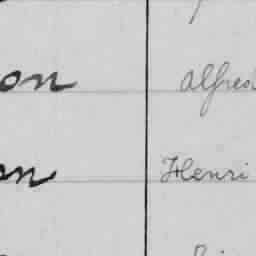 on Alfred
on Henri